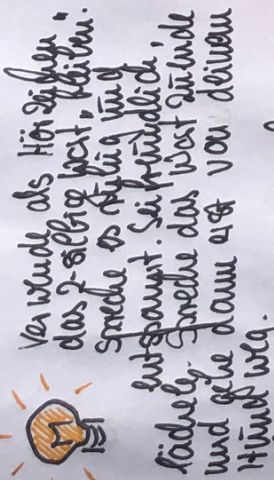 Verwende als Hörzeichen,
das 2-silbige Wort „bleiben.
Spreche es ruhig und
entspannt. Sei freundlich,
lächele. Spreche das Wort zu Ende
und gehe dann erst von deinem
Hund weg.